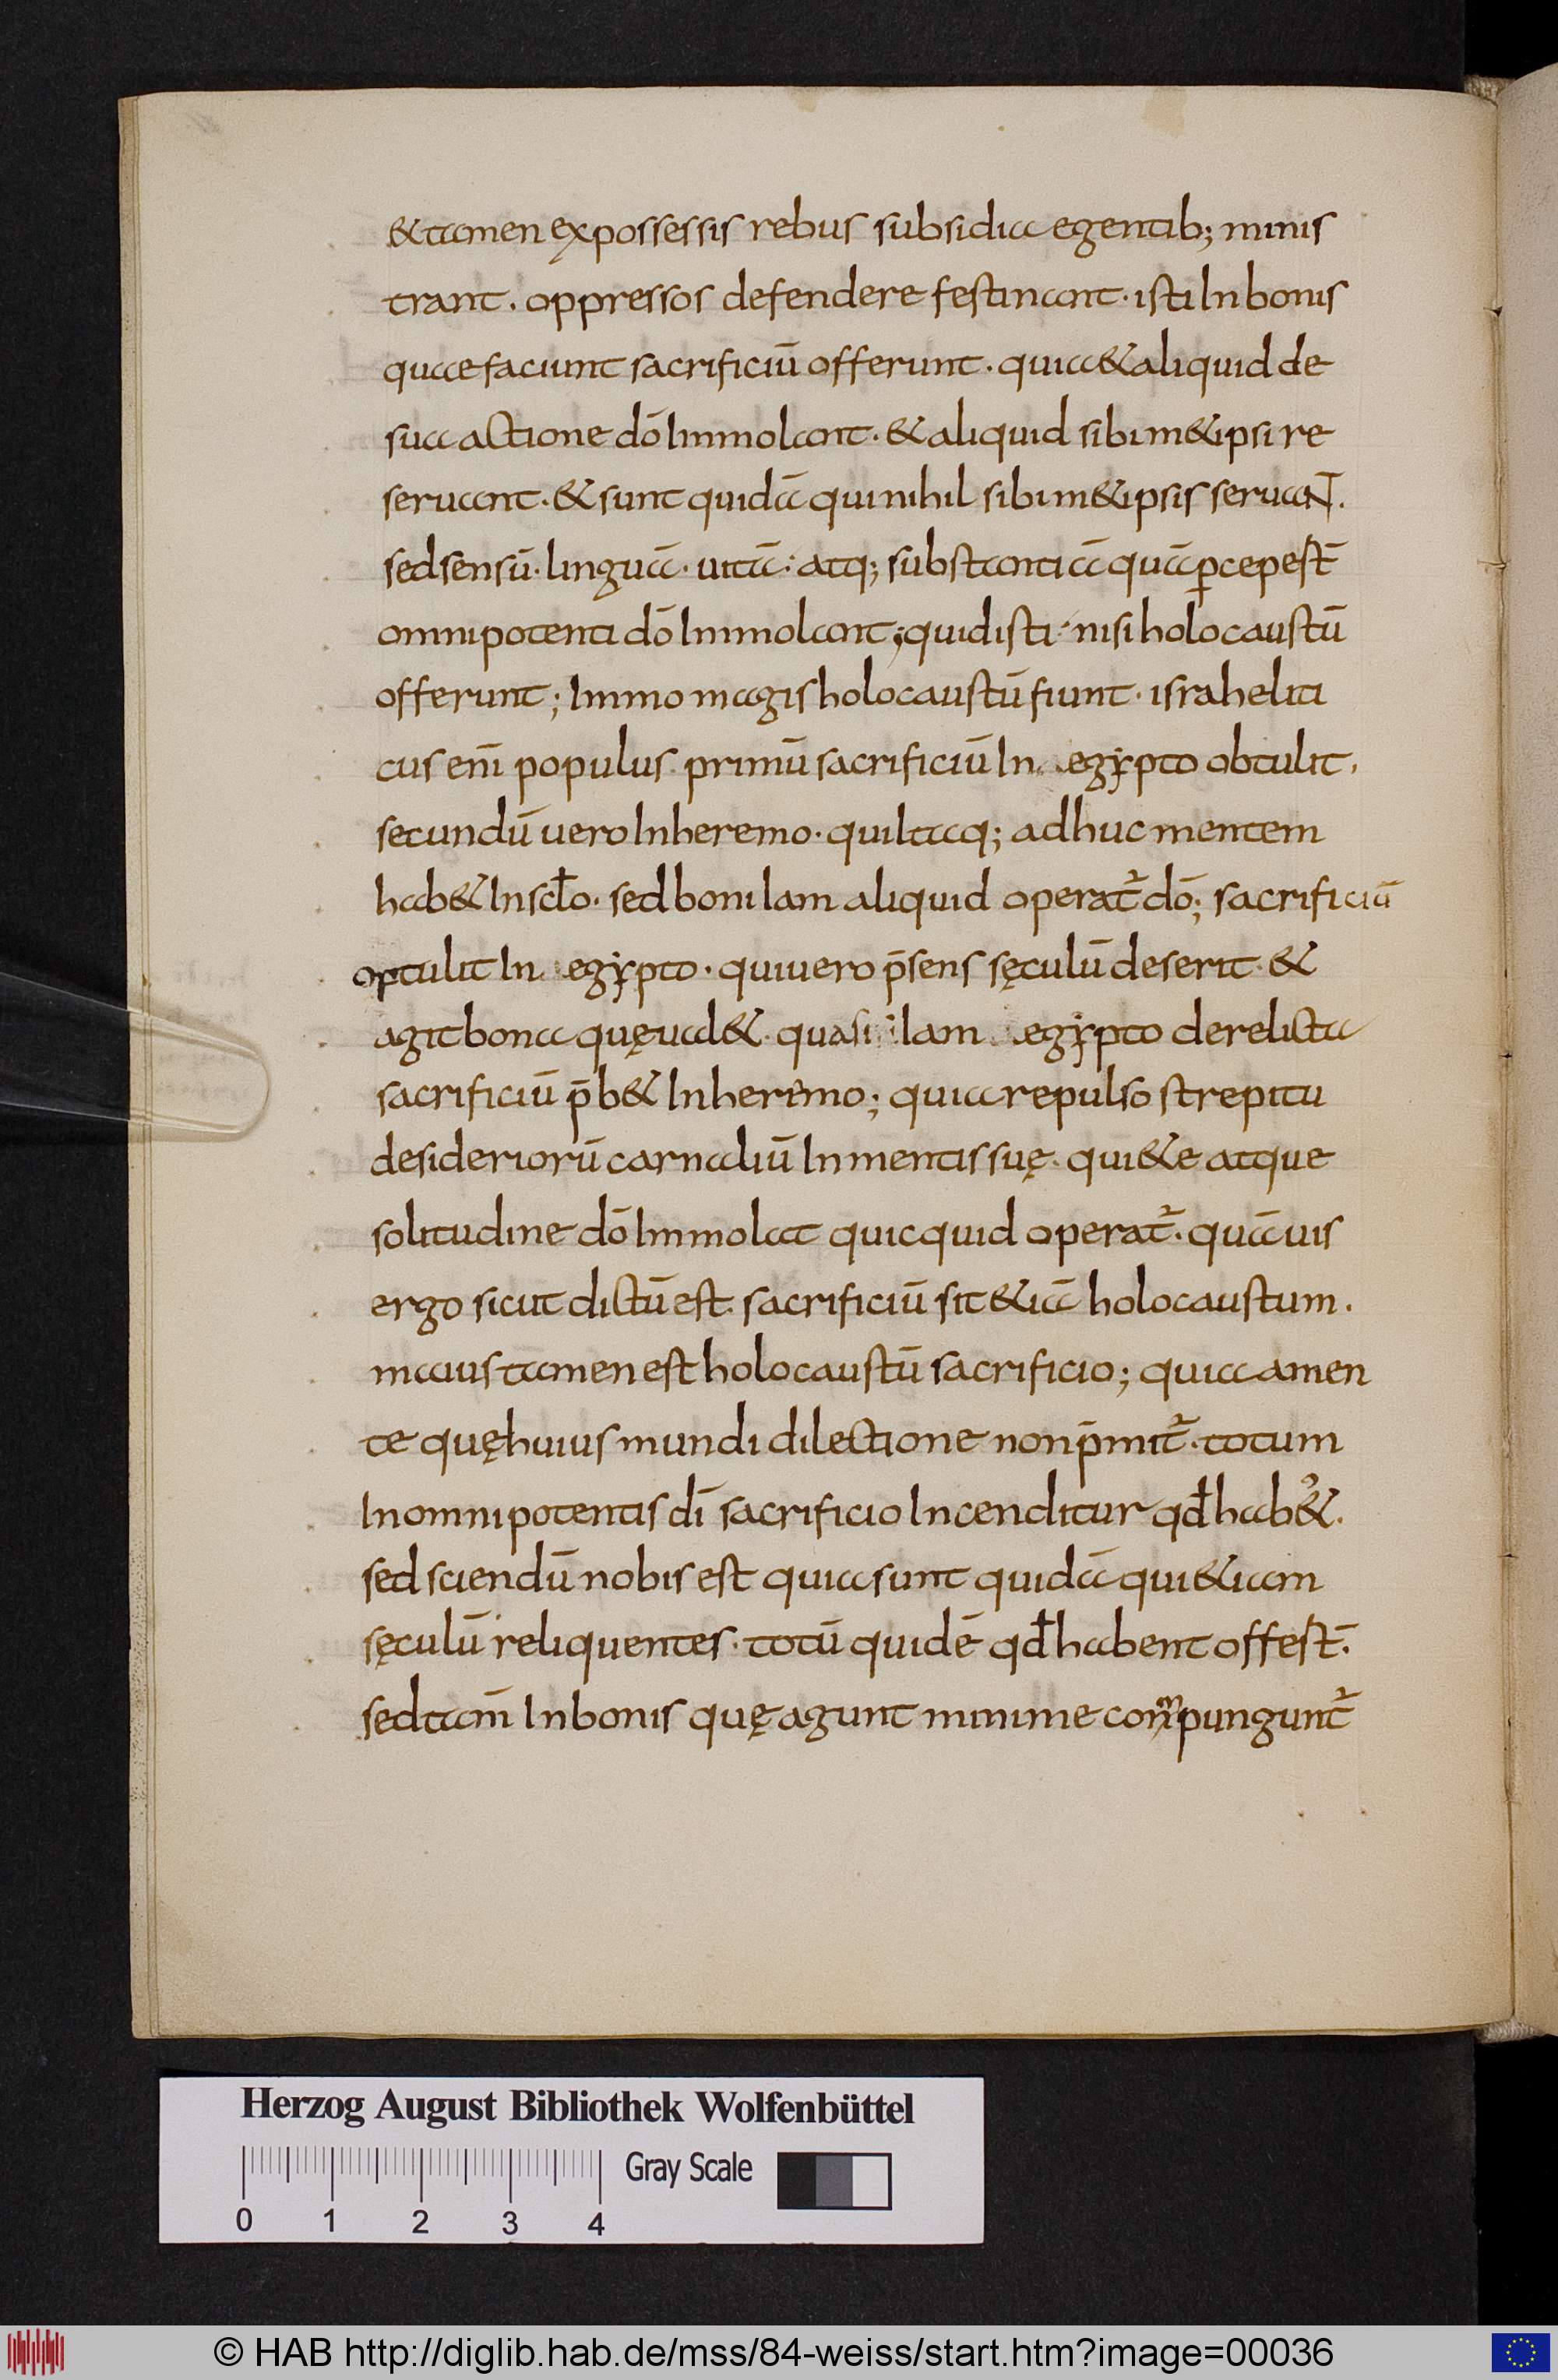 & tamen ex possessis rebus subsidia egentib; minis
trant. oppressos defendere festinant. isti In bonis
quae faciunt sacrificiū offerunt. quia & aliquid de
sua actione dō Immolant. & aliquid sibi m&ipsi re
seruant. & sunt quidā qui nihil sibi m&ipsis seruaNT.
sed sensū. linguā. uitā. atq; substantiā quā ꝑcepeſt̄
omnipotenti dō Immolant; quid isti nisi holocaustū
offerunt; Immo magis holocaustū fiunt. israheliti
cus enī populus primū sacrificiū In egẏpto obtulit,
secundū uero In heremo. qui Itaq; adhuc mentem
hab& In scło. sed boni Iam aliquid operat̄ dō; sacrificiū
optulit In egẏpto. qui uero p̄sens sęculū deserit. &
agit bona quę ual&. quasi Iam egẏpto derelicta
sacrificiū p̄b& In heremo; quia repulso strepitu
desideriorū carnaliū In mentis suę. qui&e atque
solitudine dō Immolat quicquid operat̄. quāuis
ergo sicut dictū est. sacrificiū sit &iā holocaustum.
maius tamen est holocaustū sacrificio; quia amen
te quę huius mundi dilectione non p̄mit̄. totum
In omnipotentis dī sacrificio Incenditur qđ hab&.
sed sciendū nobis est quia sunt quidā qui &iam
sęculū reliquentes. totū quidē qđ habent offeſt̄.
sed tam̄ In bonis quę agunt minime compungunt̄
Herzog August Bibliothek Wolfenbüttel
Gray Scale
0 1 2 3 4
© HAB http://diglib.hab.de/mss/84-weiss/start.htm?image=00036